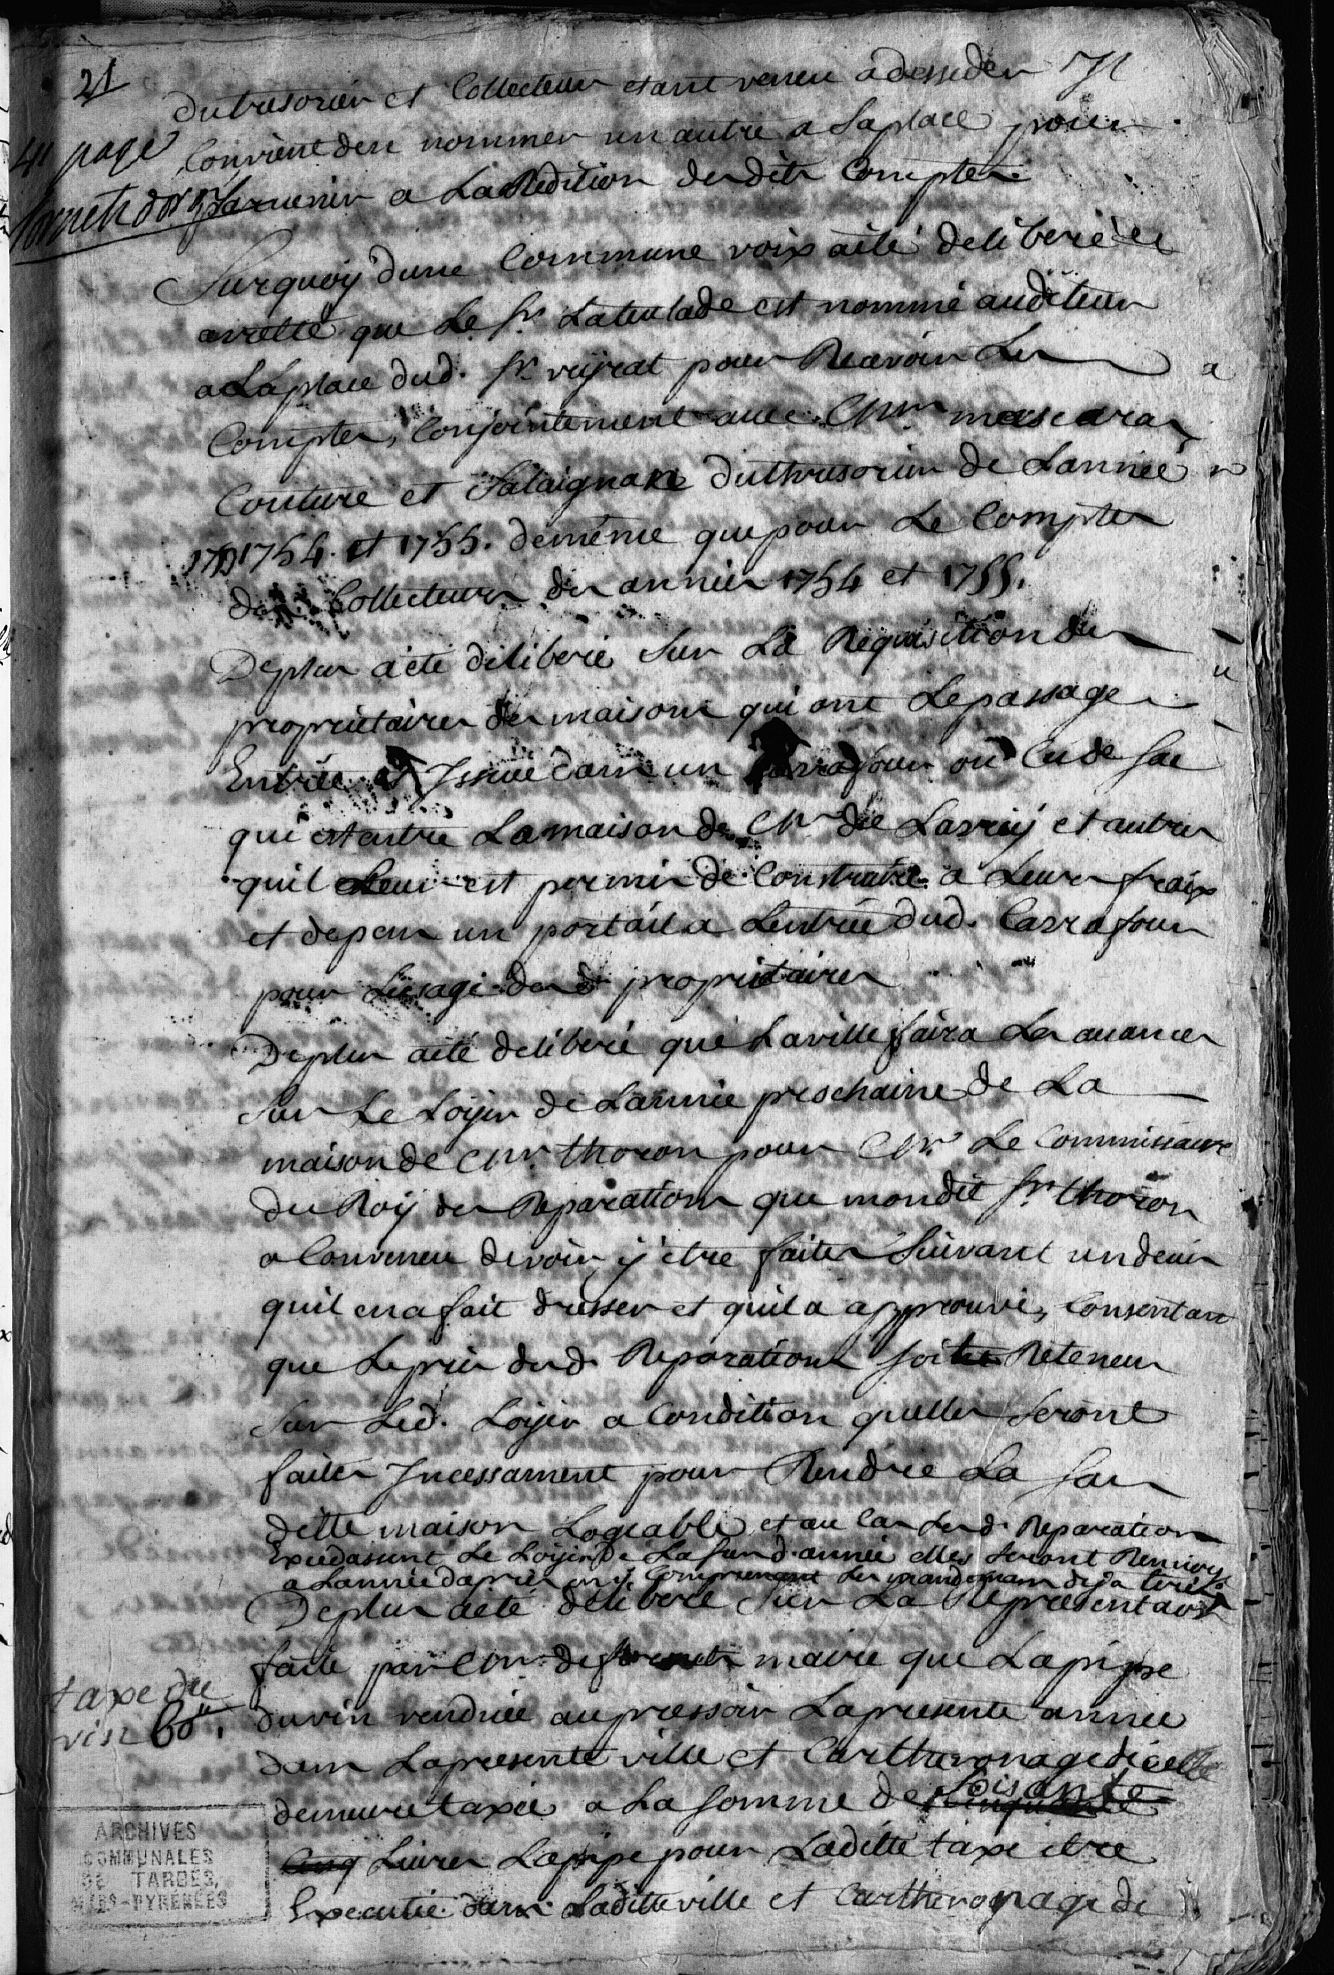 21
du tresorier et Collecteur etant veneu a desseder Il
4e page
Convient den nommer un autre a Saplace pour
parvenir a La Redition desdits Comptes
Surquoy dune Commune voix aété deliberé et
arretté que Le Sr. Lateulade est nommé auditeur
a Laplace dud. Sr. veyrat pour Recevoir Les
Comptes, Conjointement avec Mrs. mascaras
Couture et Salaignac du thresorier de Lannée
1754. et 1755. deméme que pour Le Compte
des Collecteurs des années 1754 et 1755.
Deplus aété déliberé Sur La Requisition des
proprietaires des maisons qui ont Lepassage
Entrée et Issue dans un Carrafour ou Cu de Sac
qui est entre Lamaison de Mr. de Larrey et autres
quil Leur est permis de Construire a Leurs fraix
et depens un portail a Lentrée dud. Carrafour
pour Lusage desd. proprietaires
Deplus aété deliberé que Laville faira Les avances
Sur Le Loyer de Lannée prochaine de La
maison de Mr. thoron pour Mr. Le Commissaire
du Roy des Reparations que mondit Sr. thoron
a Conveneu devoir y étre faites Suivant un devis
quil ena fait dresser et quil a approuvé, Consentant
que Leprix desd. Reparations soit Reteneu
Sur Led. Loyer a Condition quelles Seront
faites Incessament pour Rendre La Sus
ditte maison Logeable et au Cas Lesd. Reparations
Excedassent Le Loyer de La Susd. année elles seront Renvoyé
a Lannée daprés on y Comprenant Les mandemans deja tirés
Deplus aété deliberé Sur La Representaon
faite par Mr. de maire que Lapippe
taxe du
vin 60ll.
du vin vendue au pressoir Lapresente année
dans Lapresente ville et Cartheronage dicelle
demeure taxée a La Somme de soisante
Livres Lapipe pour Laditte taxe étre
Executée dans Laditte ville et Cartheronage de
ARCHIVES
COMMUNALES
DE TARBES,
HTES-PYRÉNÉES